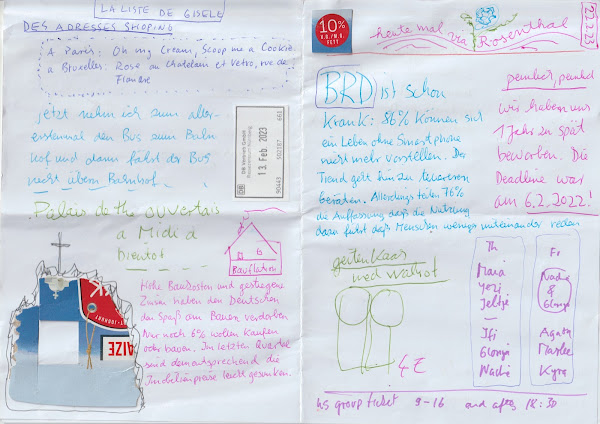 LA LISTE DE GISELE
DES ADRESSES SHOPING
A Paris: Oh my Cream, Scoop me a Cookie
a Bruxelles: Rose au Chatelain et Vetro, rue de
Flandre
jetzt nehm ich zum aller-
erstenmal den Bus zum Bahn
hof und dann fährt der Bus
nicht überm Bahnhof.
DB Vertrieb GmbH
13 Feb. 2023
DB
90443
661
Palais de the ouvertais
a Midi à
bientot
6
Bauflation
Hohe Baukosten und gestiegene
Zinsen haben den Deutschen
den Spaß am Bauen verdorben
Nur noch 6% wollen kaufen
oder bauen. Im letzten Quartal
sind dementsprechend die
Imobilienpreise leicht gesunken.
AIZE
10%
FETT
heute mal via Rosenthal
BRD ist schon
krank: 86% können sich
ein Leben ohne Smartphone
nicht mehr vorstellen. Der
Trend geht hin zu teureren
Geräten. Allerdings teilen 76%
die Auffassung daß die Nutzung
dazu führt daß Menschen weniger miteinander reden
peinlich, peinlich
wir haben uns
1 Jahr zu spät
beworben. Die
Deadline war
am 6.2.2022!
geitenkaas
med walnot
4€
Th
Maria
Yerzi
Jeltje
Ifi
Glorija
Nadie
Fr
Nadie
&
Glorija
Agata
Marlee
Kyra
group ticket 9-16 and after 18:30